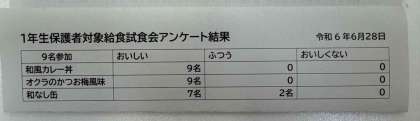 1年生保護者対象給食試食会アンケート結果 令和6年6月28日
9名参加 おいしい ふつう おいしくない
和風カレー丼 9名 0 0
オクラのかつお梅風味 9名 0 0
和なし缶 7名 2名 0